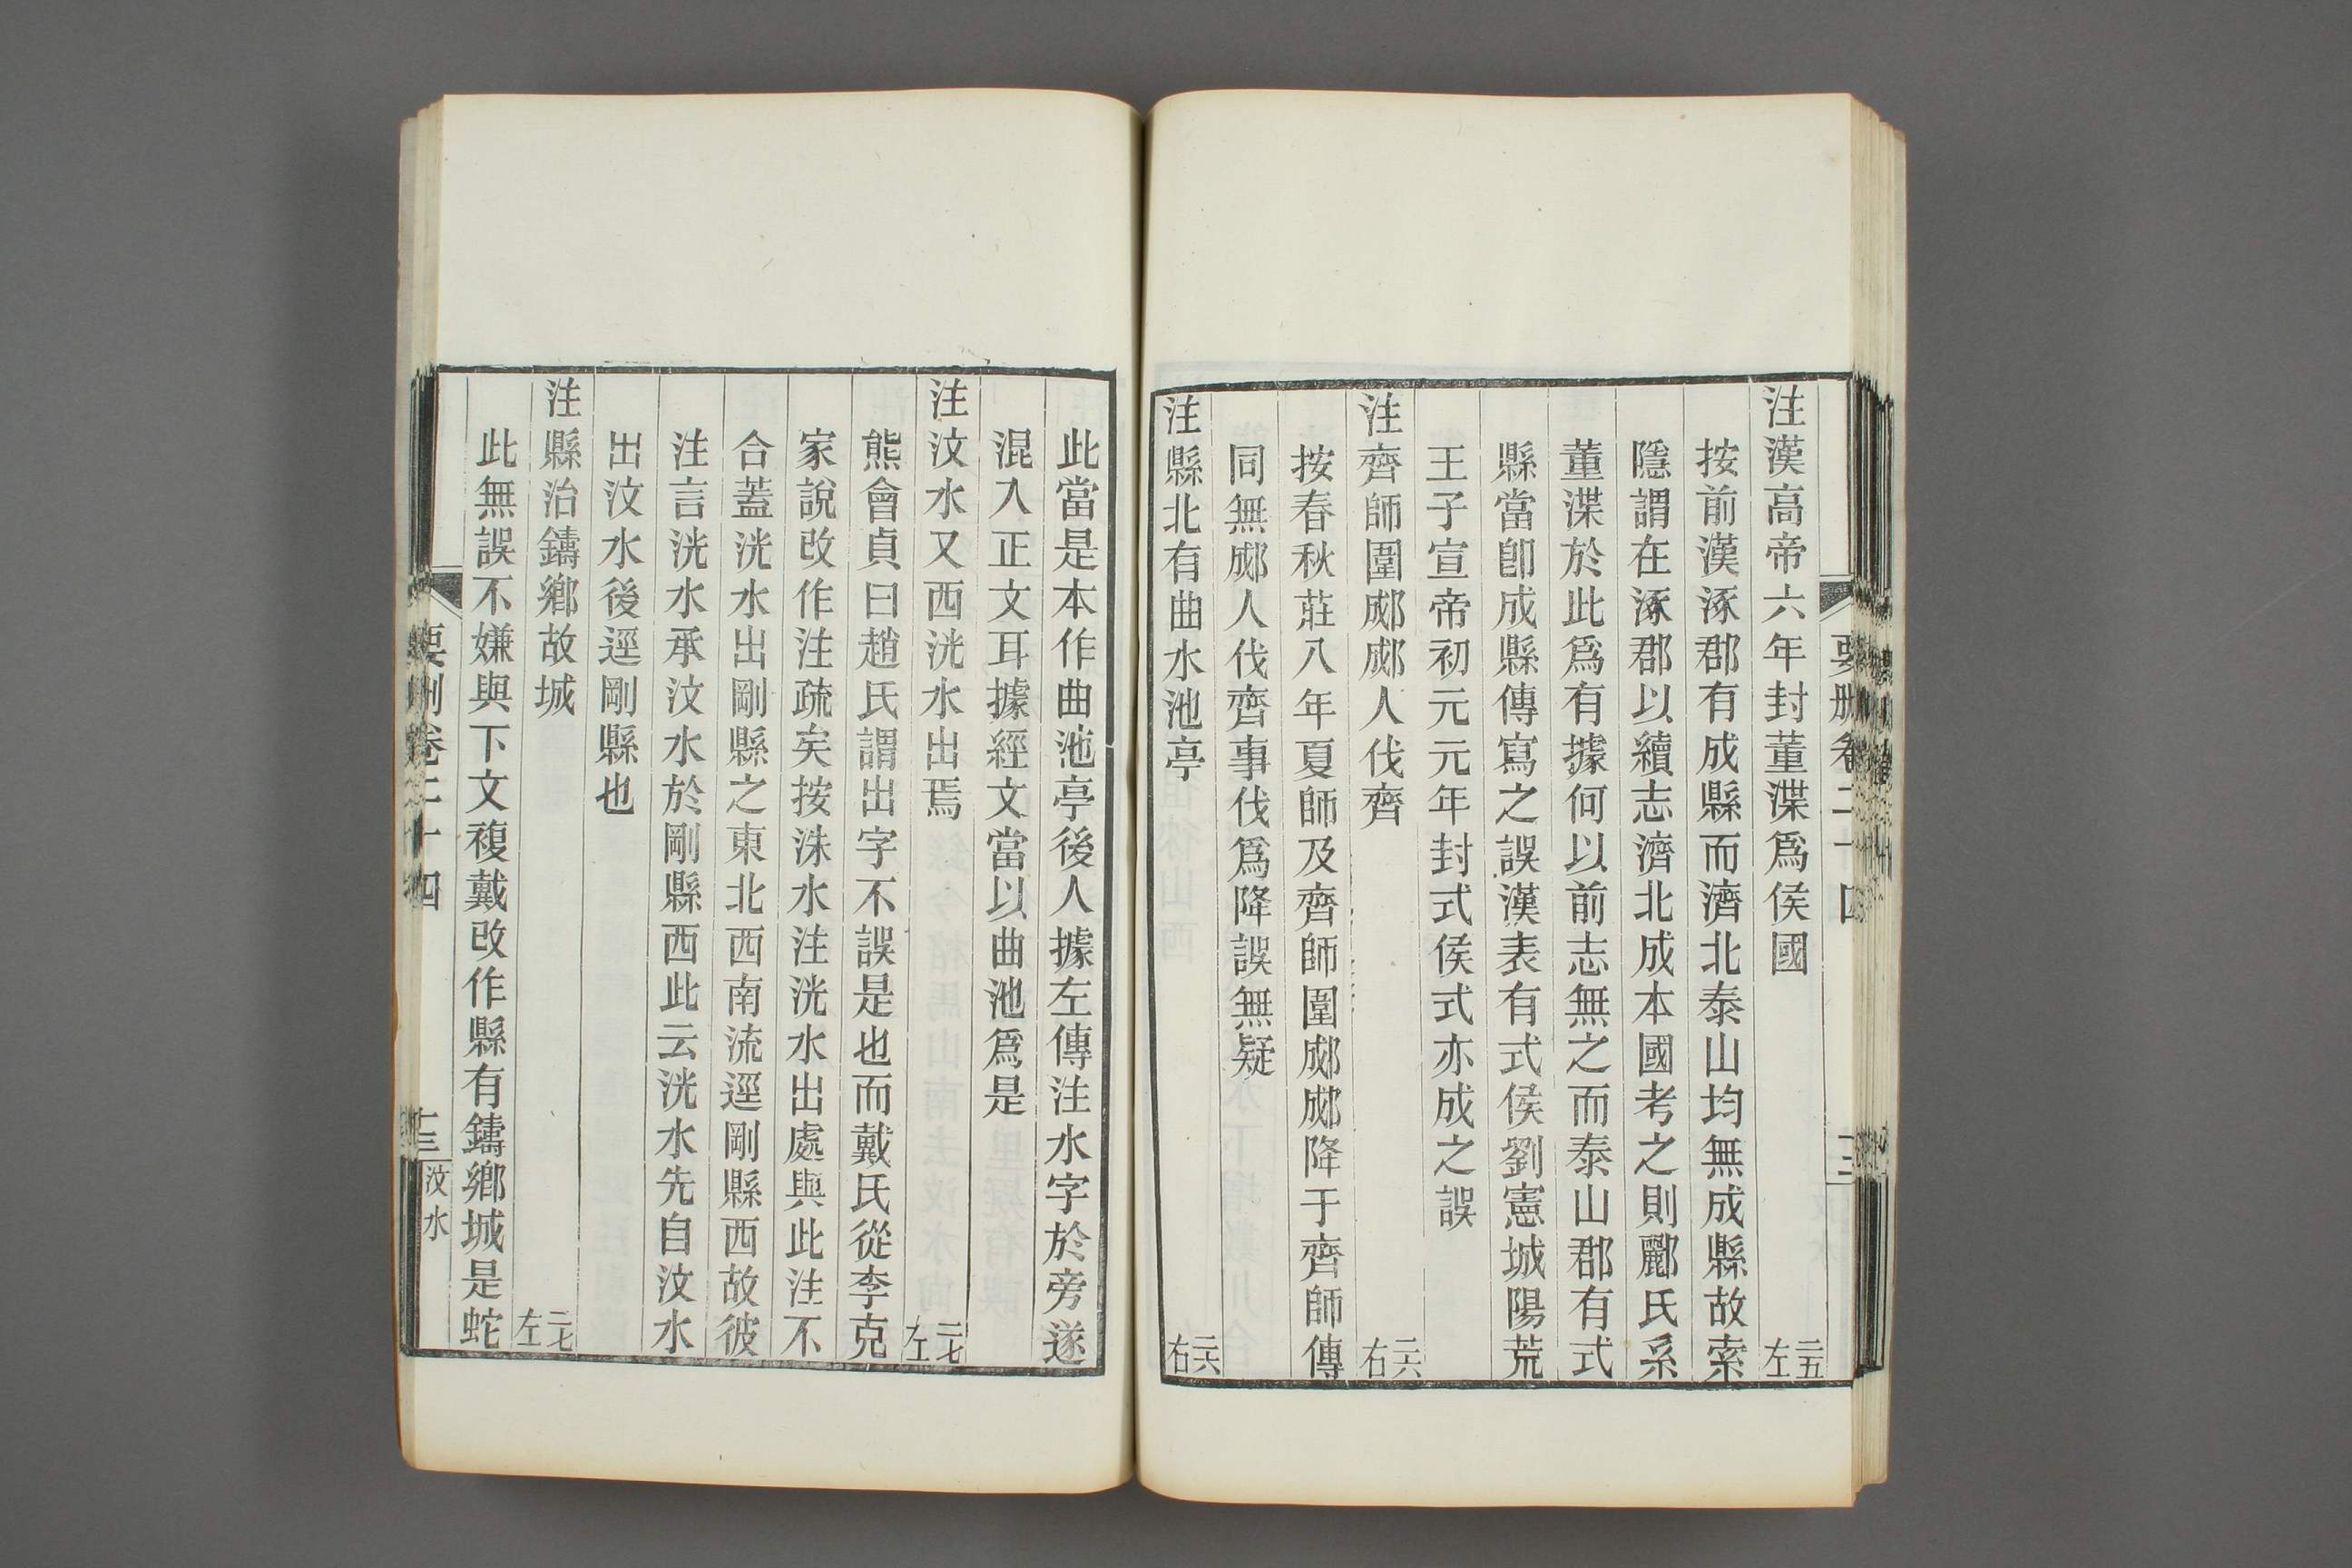 注漢高帝六年封董渫爲侯國 二五左
按前漢涿郡有成縣而濟北泰山均無成縣故索
隱謂在涿郡以續志濟北成本國考之則酈氏系
董渫於此爲有據何以前志無之而泰山郡有式
縣當卽成縣傳寫之誤漢表有式侯劉憲城陽荒
王子宣帝初元元年封式侯式亦成之誤
注齊師圍郕郕人伐齊 二六右
按春秋莊八年夏師及齊師圍郕郕降于齊師傳
同無郕人伐齊事伐爲降誤無疑
注縣北有曲水池亭 二六右
此當是本作曲池亭後人據左傳注水字於旁遂
混入正文耳據經文當以曲池爲是
注汶水又西洸水出焉 二七左
熊會貞曰趙氏謂出字不誤是也而戴氏從李克
家說改作注疏矣按洙水注洸水出處與此注不
合蓋洸水出剛縣之東北西南流逕剛縣西故彼
注言洸水承汶水於剛縣西此云洸水先自汶水
出汶水後逕剛縣也
注縣治鑄鄉故城 二七左
此無誤不嫌與下文複戴改作縣有鑄鄉城是蛇
要刪卷二十四 十三 汶水